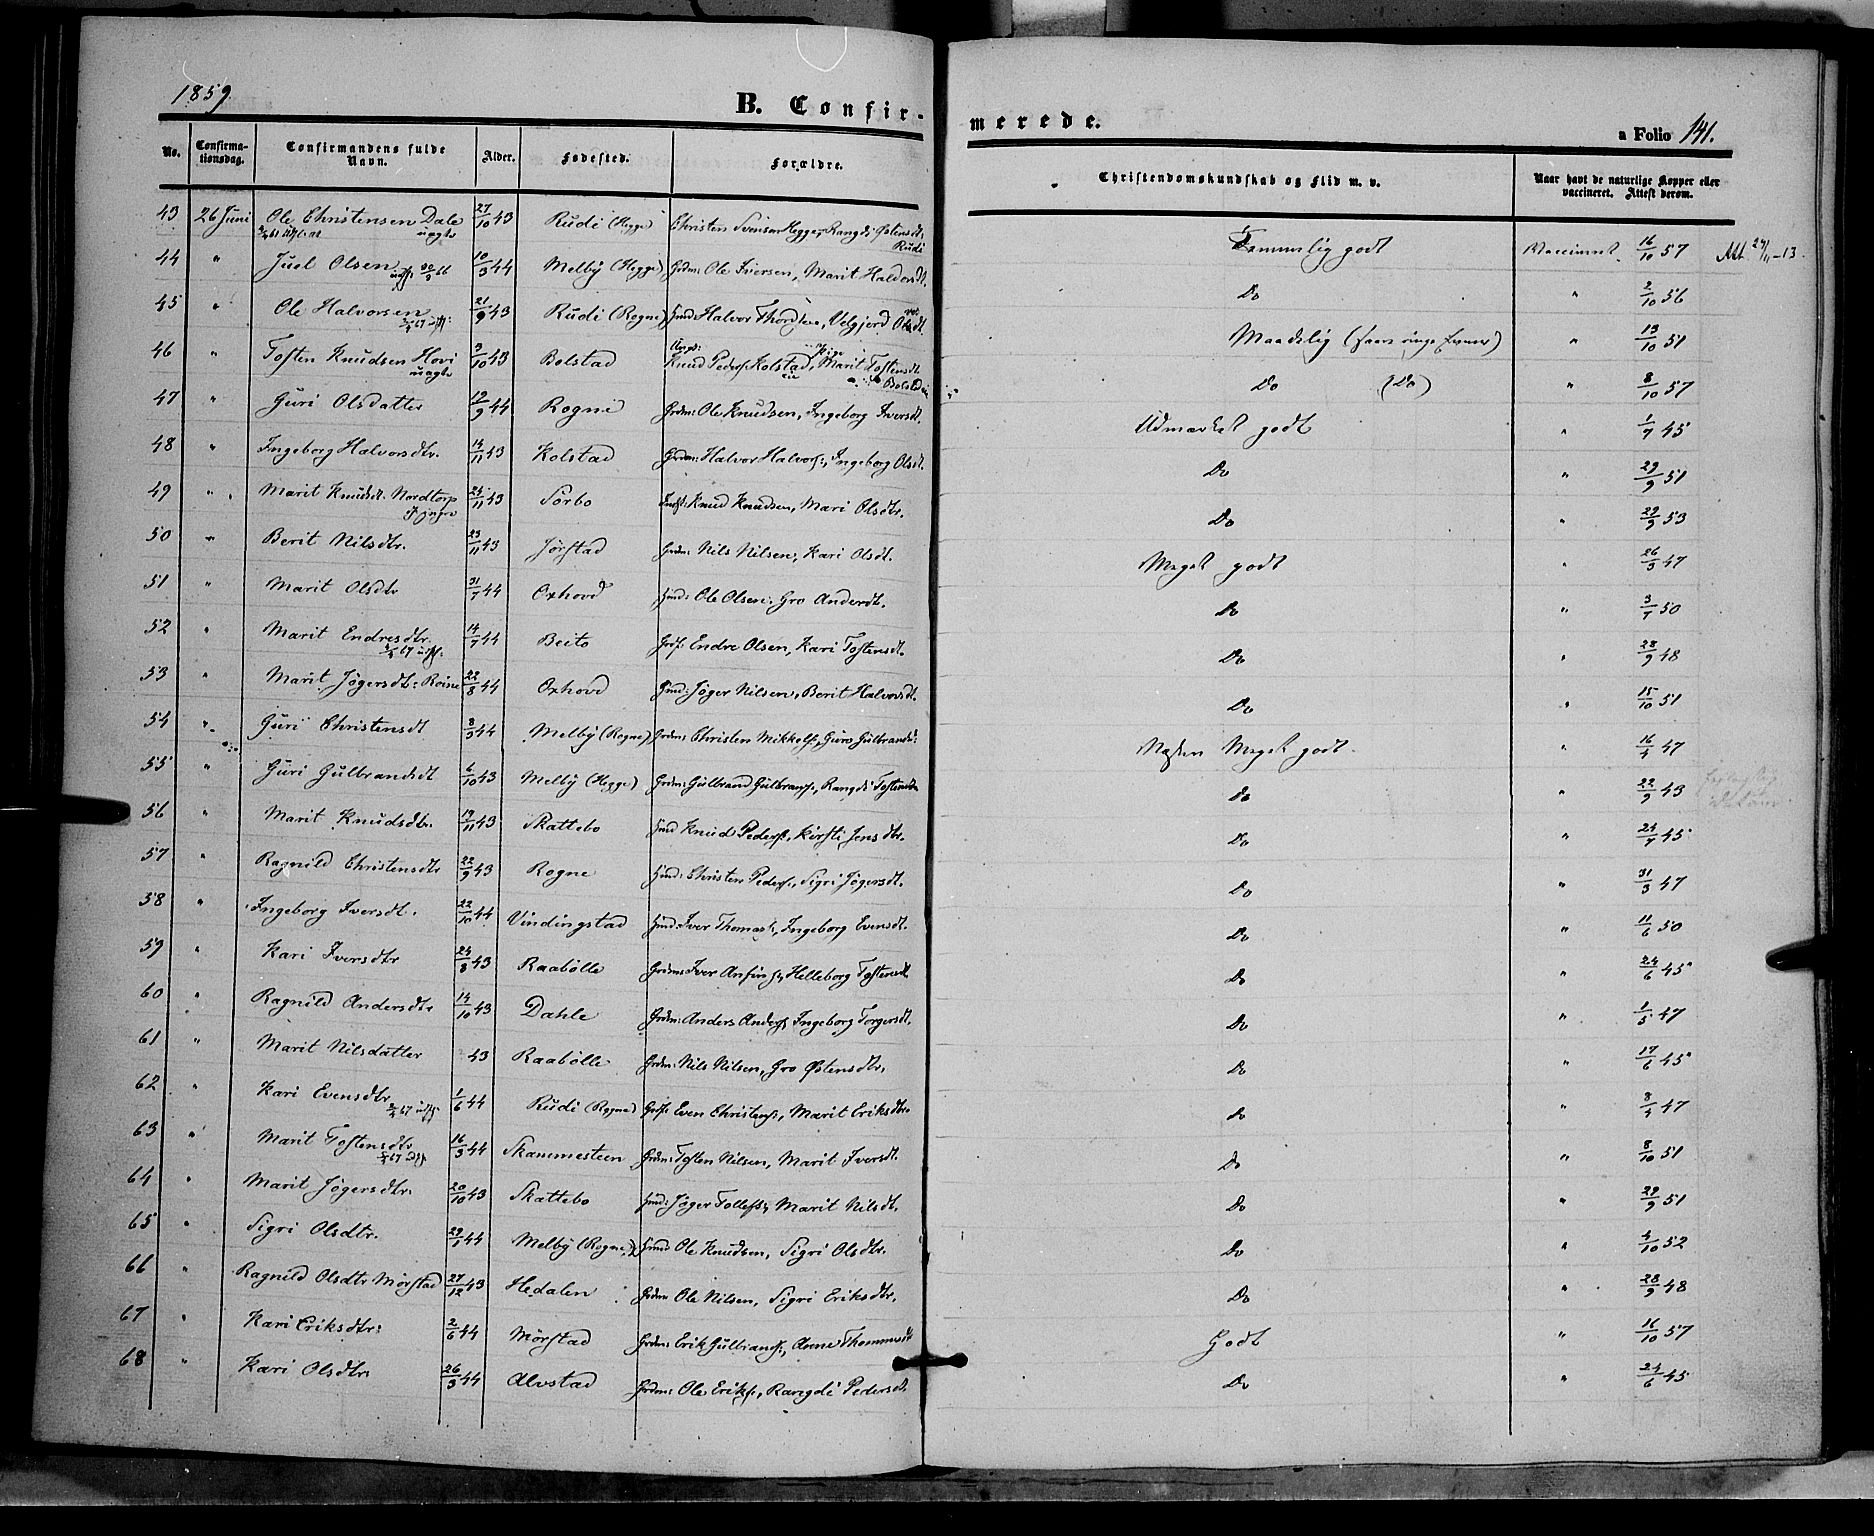 1859.
B. Confir-
merede.
a Folio 141.
No. Confirma-tionsdag. Confirmandens fulde Navn. Alder. Fødested. Forældre. Christendomskundskab og Flid m. v. Naar havt de naturlige Kopper eller vaccineret. Attest derom.
43 26 Juni Ole Christensen Dale uagte 27/10 43 Rudi (Hegge) Christen Svensen Hegge, Rangdi Østensdt. Rudi Temmelig godt Vaccineret 16/10 57 Att. 24/11-13.
44 " Juel Olsen 10/3 44 Melby (Hegge) Grdm: Ole Iversen, Marit Haldorsdt. Do " 2/10 56
45 " Ole Halvorsen 21/9 43 Rudi (Rogne) Hmd: Halvor Thordsen, Velgjerd Olsdt. Maadelig " 13/10 51
46 " Tosten Knudsen Hovi uagte 3/10 43 Bolstad Ungk: Knud Peders. Kolstad, Pige Marit Tostensdt. Bolstad Do (Do) " 8/10 57
47 " Guri Olsdatter 12/9 44 Rogne Grdm: Ole Knudsen, Ingeborg Iversdt. Udmærket godt " 1/7 45
48 " Ingeborg Halvorsdtr. 14/11 43 Kolstad Grdm: Halvor Halvors:, Ingeborg Olsdt. Do " 29/9 51
49 " Marit Knudsdt. Nordtorp 25/11 43 Sørbo Knud Knudsen, Mari Olsdtr. Do " 29/9 53
50 " Berit Nilsdtr. 23/11 43 Jørstad Grdm: Nils Nilsen, Kari Olsdt. Meget godt " 26/3 47
51 " Marit Olsdtr 31/7 44 Oxhovd Hmd: Ole Olsen, Gro Andersdt. Do " 3/7 50
52 " Marit Endresdtr. 14/7 44 Beito Endre Olsen, Kari Tostensdt. Do " 28/9 48
53 " Marit Jøgersdt: Roine 22/8 44 Oxhovd Hmd: Jøger Nilsen, Berit Halvorsdt. Do " 15/10 51
54 " Guri Christensdt 8/3 44 Melby (Rogne) Grdm: Christen Mikkels:, Guro Gulbrandsd: Næsten Meget godt. " 16/4 47
55 " Guri Gulbrandsdt 6/10 43 Melby (Hegge) Grdm: Gulbrand Gulbrands:, Rangdi Tostensdtr Do " 22/9 43
56 " Marit Knudsdtr. 19/11 43 Skattebo Hmd Knud Peders:, Kirsti Jensdtr. Do " 24/7 45
57 " Ragnild Christensdtr 22/9 43 Rogne Hmd: Christen Peders:, Sigri Jøgersdt. Do " 31/3 47
58 " Ingeborg Iversdt. 22/10 44 Vindingstad Hmd: Iver Thomas:, Ingeborg Evensdt. Do " 11/6 50
59 " Kari Iversdtr 24/8 43 Raabølle Grdm: Iver Anfins:, Helleborg Tostensdt. Do " 24/6 45
60 " Ragnild Andersdtr 14/10 43 Dahle Grdm: Anders Anders:, Ingeborg Torgersdt. Do " 1/5 47
61 " Marit Nilsdatter 43 Raabølle Grdm: Nils Nilsen, Gro Østensdtr. Do " 17/6 45
62 " Kari Evensdtr 1/6 44 Rudi (Rogne) Even Christens:, Marit Eriksdtr. Do " 8/4 47
63 " Marit Tostensdtr 16/3 44 Skammesteen Grdm: Tosten Nilsen, Marit Iversdt. Do " 8/10 51
64 " Marit Jøgersdtr. 20/10 43 Skattebo Hmd: Jøger Tollefs:, Marit Nilsdt. Do " 29/9 51
65 " Sigri Olsdtr. 29/1 44 Melby (Rogne) Hmd Ole Knudsen, Sigri Olsdtr. Do " 4/10 52
66 " Ragnild Olsdtr Mørstad 27/12 43 Hedalen Grdm: Ole Nilsen, Sigri Eriksdtr. Do " 28/9 48
67 " Kari Eriksdtr: 2/6 44 Mørstad Grdm: Erik Gulbrands:, Anne Thomasdt Godt " 16/10 57
68 " Kari Olsdtr. 26/3 44 Alvstad Grdm: Ole Eriks:, Rangdi Pedersdt. Do " 24/6 45